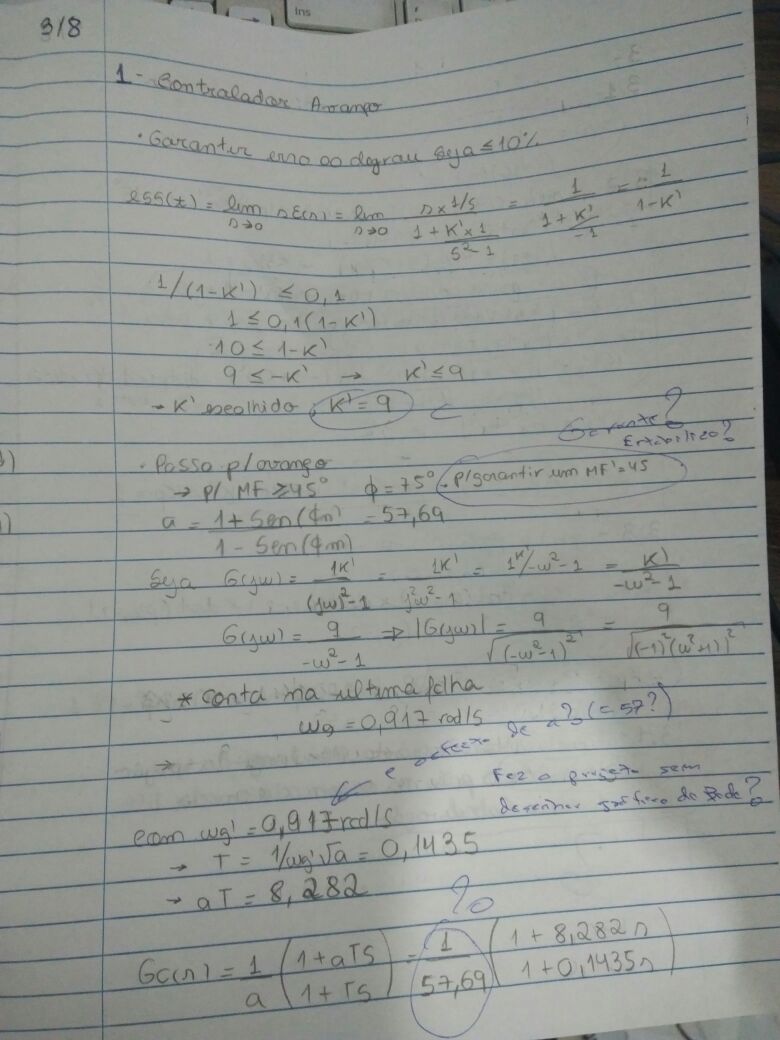 Ins
3/8
1- Controlador Avanço
• Garantir erro ao degrau seja ≤ 10%
ess(t) = lim s→0 sE(s) = lim s→0 (s × 1/s)/(1 + K' × 1/(s² - 1)) = 1/(1 + K'/-1) = 1/(1-K')
1/(1-K') ≤ 0,1
1 ≤ 0,1(1-K')
10 ≤ 1-K'
9 ≤ -K' → K' ≤ 9
→ K' escolhido, K' = 9
Garante
Estabilizo?
• Passo p/ avanço
→ p/ MF ≥ 45° ϕ = 75° . p/ garantir um MF' = 45
a = (1 + Sen(ϕm))/(1 - Sen(ϕm)) = 57,69
Seja G(jw) = 1K'/((jw)² - 1) = 1K'/(j²w² - 1) = 1K'/-w² - 1 = K'/(-w² - 1)
G(jw) = 9/(-w² - 1) ⇒ |G(jw)| = 9/√((-w² - 1)²) = 9/√((-1)²(w² + 1)²)
* conta na ultima folha
wg = 0,917 rad/s
→ e o efeito de a? (= 57?)
Fez o projeto sem
desenhar gráfico de Bode?
com wg' = 0,917 rad/s
→ T = 1/wg'√a = 0,1435
→ aT = 8,282
?
Gc(s) = 1/a ((1 + aTS)/(1 + TS)) = 1/57,69 ((1 + 8,282s)/(1 + 0,1435s))